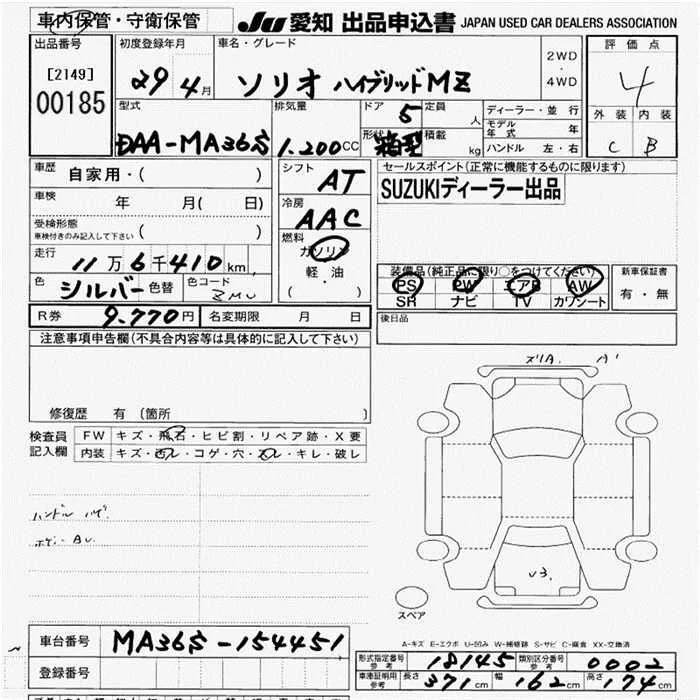 車内保管・守衛保管
JU 愛知 出品申込書 JAPAN USED CAR DEALERS ASSOCIATION
出品番号
[2149]
00185
初度登録年月
29 4月
車名・グレード
ソリオ ハイブリッドMZ
2WD
・
4WD
評価点
4
外装 内装
C B
型式
DAA-MA36S
排気量
1.200CC
ドア 5
形状 箱型
定員 人
積載 kg
ディーラー・並行
モデル年式 年
ハンドル 左・右
車歴 自家用・( )
車検 年 月( 日)
受検形態
車検付きのみ記入して下さい ( )
走行 11万6千410km
色 シルバー 色替 色コード ZMU
シフト AT
冷房 AAC
燃料
ガソリン
軽・油
( ・ )
セールスポイント(正常に機能するものに限ります)
SUZUKIディーラー出品
装備品(純正品に限り○をつけてください)
PS PW エアB AW
SR ナビ TV カワシート
新車保証書
有・無
後日品
R券 9.770円 名変期限 月 日
注意事項申告欄(不具合内容等は具体的に記入して下さい)
修復歴 有 (箇所 )
検査員記入欄
FW キズ・飛石・ヒビ割・リペア跡・X要
内装 キズ・汚レ・コゲ・穴・スレ・キレ・破レ
ハンドル ハゲ
A1
U3.
スペア
A-キズ E-エクボ U-凹み W-補修跡 S-サビ C-腐食 XX-交換済
車台番号 MA36S-154451
登録番号
形式指定番号 参考 18145 類別区分番号 参考 0002
車庫証明用 参考 長さ 371cm 幅 162cm 高さ 174cm